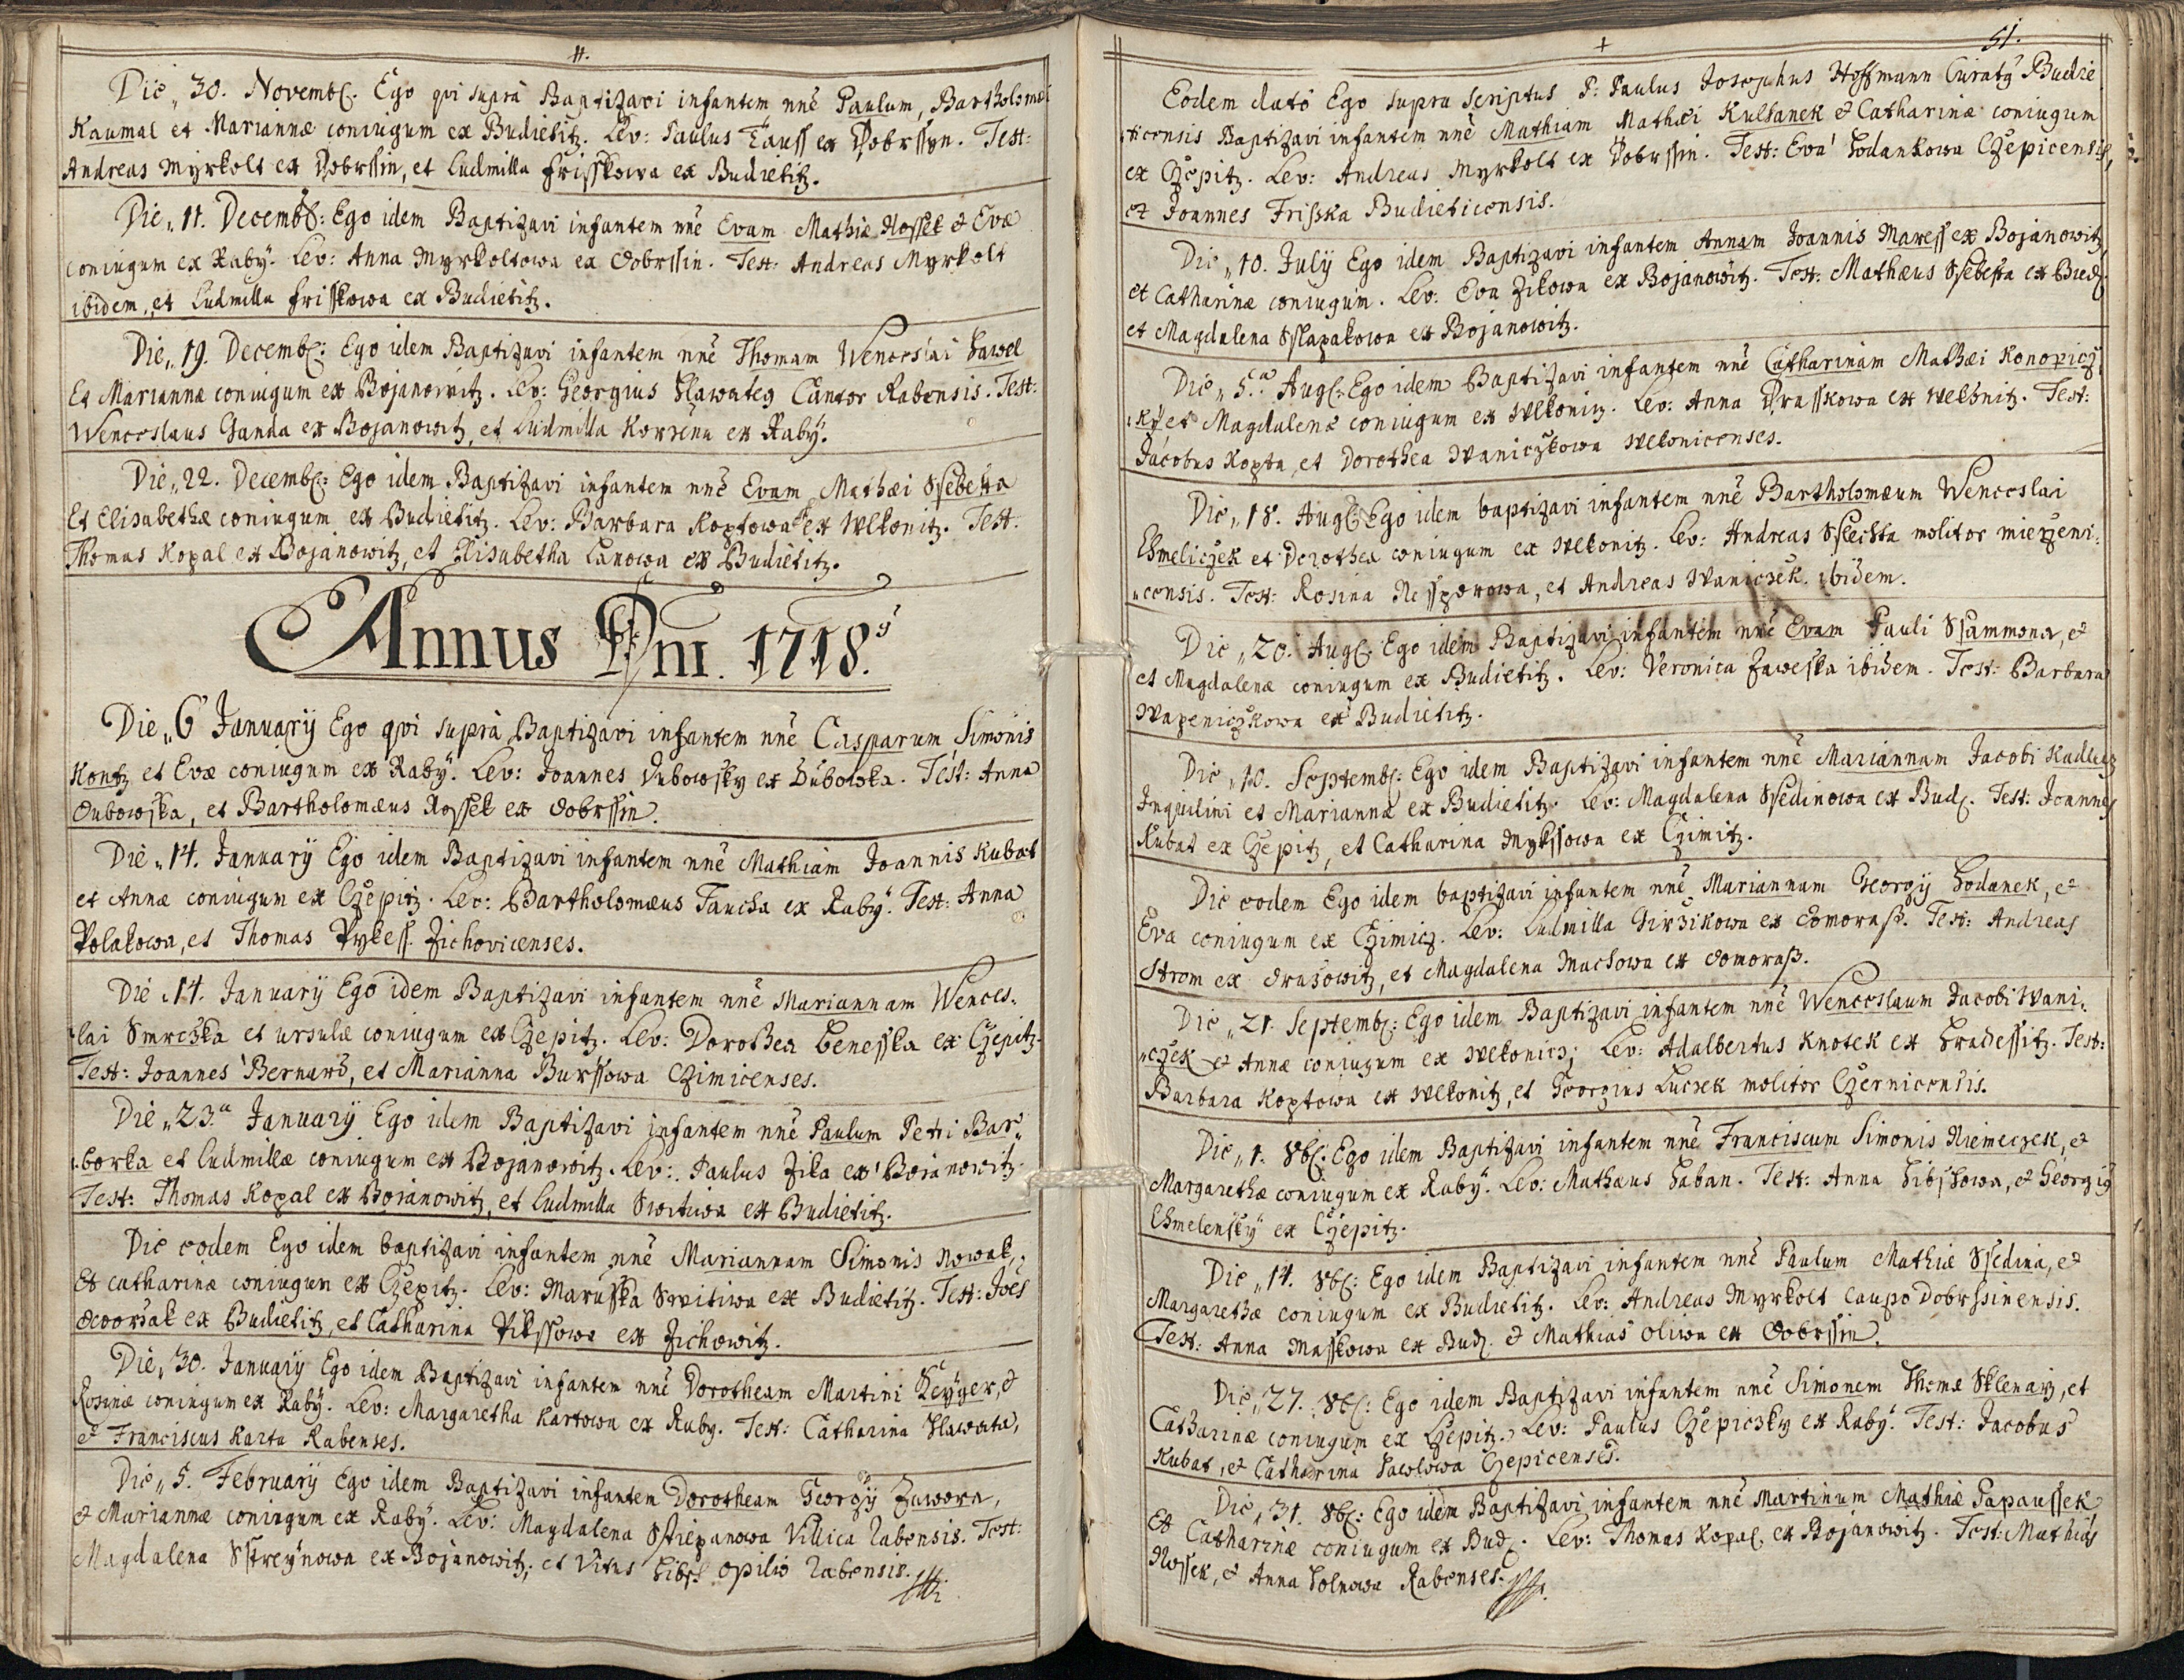 Die „30. Novemb: Ego qvi suprà Baptizavi infantem nnê Paulum, Bartholomæi
Kaumal et Mariannæ coniugum ex Budietitz. Lev: Paulus Tauss ex Dobrssyn. Test:
Andreas Myrkolt ex Dobrssin, et Ludmilla Frisskowa ex Budietitz.
Die „11. Decemb: Ego idem Baptizavi infantem nnê Evam Mathiæ Nossek & Evæ
coniugum ex Raby. Lev: Anna Myrkoltowa ex Dobrssin. Test: Andreas Myrkolt
ibidem, et Ludmilla Frisskowa ex Budietitz.
Die „19. Decemb: Ego idem Baptizavi infantem nnê Thomam Wenceslai Hawel
Et Mariannæ coniugum ex Bojanowitz. Lev: Georgius Hlawateg Cantor Rabensis. Test:
Wenceslaus Ganda ex Bojanowitz, et Ludmilla Korzena ex Raby.
Die „22. Decemb: Ego idem Baptizavi infantem nnê Evam Mathæi Ssebesta
Et Elisabethæ coniugum ex Budietitz. Lev: Barbara Koptowa ex Wlkonitz. Test:
Thomas Kopal ex Bojanowitz, et Elisabetha Lanowa ex Budietitz.
Annus Dni. 1718.
Die „6 January Ego qvi suprà Baptizavi infantem nnê Casparum Simonis
Kontz et Evæ coniugum ex Raby. Lev: Joannes Dubowsky ex Dubowka. Test: Anna
Dubowska, et Bartholomæus Rossek ex Dobrssin.
Die „14. January Ego idem Baptizavi infantem nnê Mathiam Joannis Kubat
et Annæ coniugum ex Czepitz. Lev: Bartholomæus Taucha ex Raby. Test: Anna
Polakowa, et Thomas Pykess Zichovicenses.
Die „14. January Ego idem Baptizavi infantem nnê Mariannam Wences„
„lai Smrczka et Ursulæ coniugum ex Czepitz. Lev: Dorothea Benesska ex Czepitz.
Test: Joannes Bernard, et Marianna Burssowa Czimicenses.
Die „23.a January Ego idem Baptizavi infantem nnê Paulum Petri Bar„
„borka et Ludmillæ coniugum ex Bojanowitz. Lev: Paulus Zika ex Bojanowitz.
Test: Thomas Kopal ex Bojanowitz, et Ludmilla Switiwa ex Budietitz.
Die eodem Ego idem baptizavi infantem nnê Mariannam Simonis Nowak,
Et Catharinæ coniugum ex Czepitz. Lev: Marusska Switiwa ex Budietitz. Test: Joes
Dworzak ex Budietitz, et Catharina Pikssowa ex Zichowitz.
Die „30. January Ego idem Baptizavi infantem nnê Dorotheam Martini Geyger, &
Rosinæ coniugum ex Raby. Lev: Margaretha Kartowa ex Raby. Test: Catharina Hlawata,
& Franciscus Karta Rabenses.
Die „5. February Ego idem Baptizavi infantem Dorotheam Georgy Zawora,
& Mariannæ coniugum ex Raby. Lev: Magdalena Sstiepanowa Villica Rabensis. Test:
Magdalena Sstreynowa ex Bojanowitz, et Vitus opilio Rabensis.
51.
Eodem dato Ego supra scriptus P: Paulus Josephus Hoffmann Curatg Budie
„ticensis Baptizavi infantem nnê Mathiam Mathæi Kulhanek & Catharinæ coniugum
ex Czepitz. Lev: Andreas Myrkolt ex Dobrssin. Test: Eva Hodankowa Czepicensis,
et Joannes Frisska Budieticensis.
Die „10. July Ego idem Baptizavi infantem Annam Joannis Maress ex Bojanowitz
et Catharinæ coniugum. Lev: Eva Zikowa ex Bojanowitz. Test: Mathæus Ssebesta ex Bud.
et Magdalena Sslapakowa ex Bojanowitz.
Die „5.a Aug: Ego idem Baptizavi infantem nnê Catharinam Mathæi Konopicz„
„ky et Magdalenæ coniugum ex Wlkonitz. Lev: Anna Prasskowa ex Wlkonitz. Test:
Jacobus Kopta, et Dorothea Waniczkowa Wlkonicenses.
Die „18. Aug: Ego idem baptizavi infantem nnê Bartholomæum Wenceslai
Chmeliczek et Dorothea coniugum ex Wlkonitz. Lev: Andreas Sslechta molitor mierzeni„
„censis. Test: Rosina Nessporowa, et Andreas Waniczek ibidem.
Die „20. Aug: Ego idem Baptizavi infantem nnê Evam Pauli Ssammona, &
et Magdalenæ coniugum ex Budietitz. Lev: Veronica Zaweska ibidem. Test: Barbara
Wapeniczkowa ex Budietitz.
Die „10. Septemb: Ego idem Baptizavi infantem nnê Mariannam Jacobi Kadlecz
Inquilini et Marianna ex Budietitz. Lev: Magdalena Ssedinowa ex Bud. Test: Joannes
Kubat ex Czepitz, et Catharina Mykssowa ex Czimitz.
Die eodem Ego idem baptizavi infantem nnê Mariannam Georgy Hodanek, &
Eva coniugum ex Czimicz. Lev: Ludmilla Girzikowa ex Domoraß. Test: Andreas
Strom ex Drazowitz, et Magdalena Machowa ex Domoraß.
Die „21. Septemb: Ego idem Baptizavi infantem nnê Wenceslaum Jacobi Wani„
„czek & Annæ coniugum ex Wlkonicz; Lev: Adalbertus Knotek ex Hradessitz. Test:
Barbara Koptowa ex Wlkonitz, et Georgius Luczek molitor Czernicensis.
Die „1. 8b: Ego idem Baptizavi infantem nnê Franciscum Simonis Niemeczek, &
Margarethæ coniugum ex Raby. Lev: Mathæus Laban. Test: Anna Libschowa, & Georgig
Chmelensky ex Czepitz.
Die „14. 8b: Ego idem Baptizavi infantem nnê Paulum Mathiæ Ssedina, &
Margarethæ coniugum ex Budietitz. Lev: Andreas Myrkolt Caupo Dobrssinensis.
Test: Anna Masskowa ex Bud. & Mathias Oliwa ex Dobrssin.
Die „27. 8b: Ego idem Baptizavi infantem nnê Simonem Thomæ Sklenarz, et
Catharinæ coniugum ex Czepitz. Lev: Paulus Czepiczky ex Raby. Test: Jacobus
Kubat, & Catharina Hawlowa Czepicenses.
Die „31. 8b: Ego idem Baptizavi infantem nnê Martinum Mathiæ Papaussek
Et Catharinæ coniugum ex Bud. Lev: Thomas Kopal ex Bojanowitz. Test: Mathias
Nossek, & Anna Holnowa Rabenses.